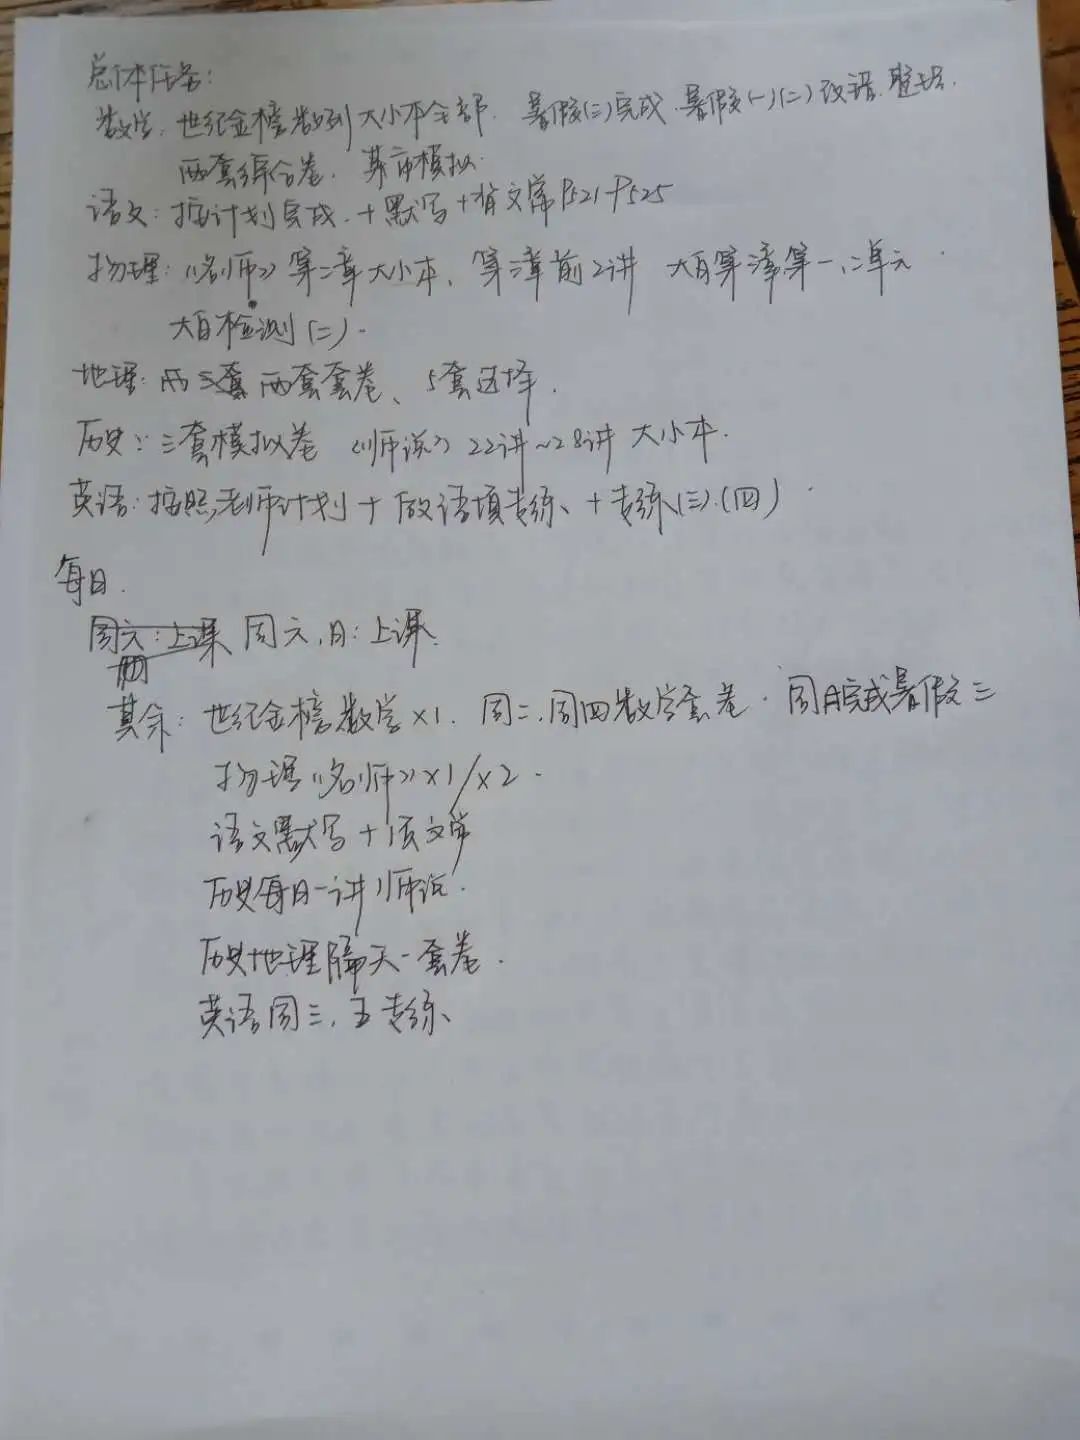 总体任务:
数学: 世纪金榜数列大小本全部. 暑假(三)完成.暑假(一)(二)改错.整理.
两套综合卷. 某市模拟.
语文: 按计划完成.+默写+背文常P521-P525
物理:《名师》第二章大小本、第三章前2讲 大百第三章第一、二单元.
大百检测(二).
地理: 两套套卷、5套选择.
历史: 三套模拟卷《师说》22讲~28讲 大小本.
英语: 按照老师计划+做语填专练、+专练(三).(四)
每日.
周六:上课 周六,日:上课.
其余: 世纪金榜数学×1. 周二.周四数学套卷. 周完成暑假三
物理《名师》×1/×2.
语文默写+1页文常
历史每日一讲师说.
历史地理隔天一套卷.
英语周三.五专练、